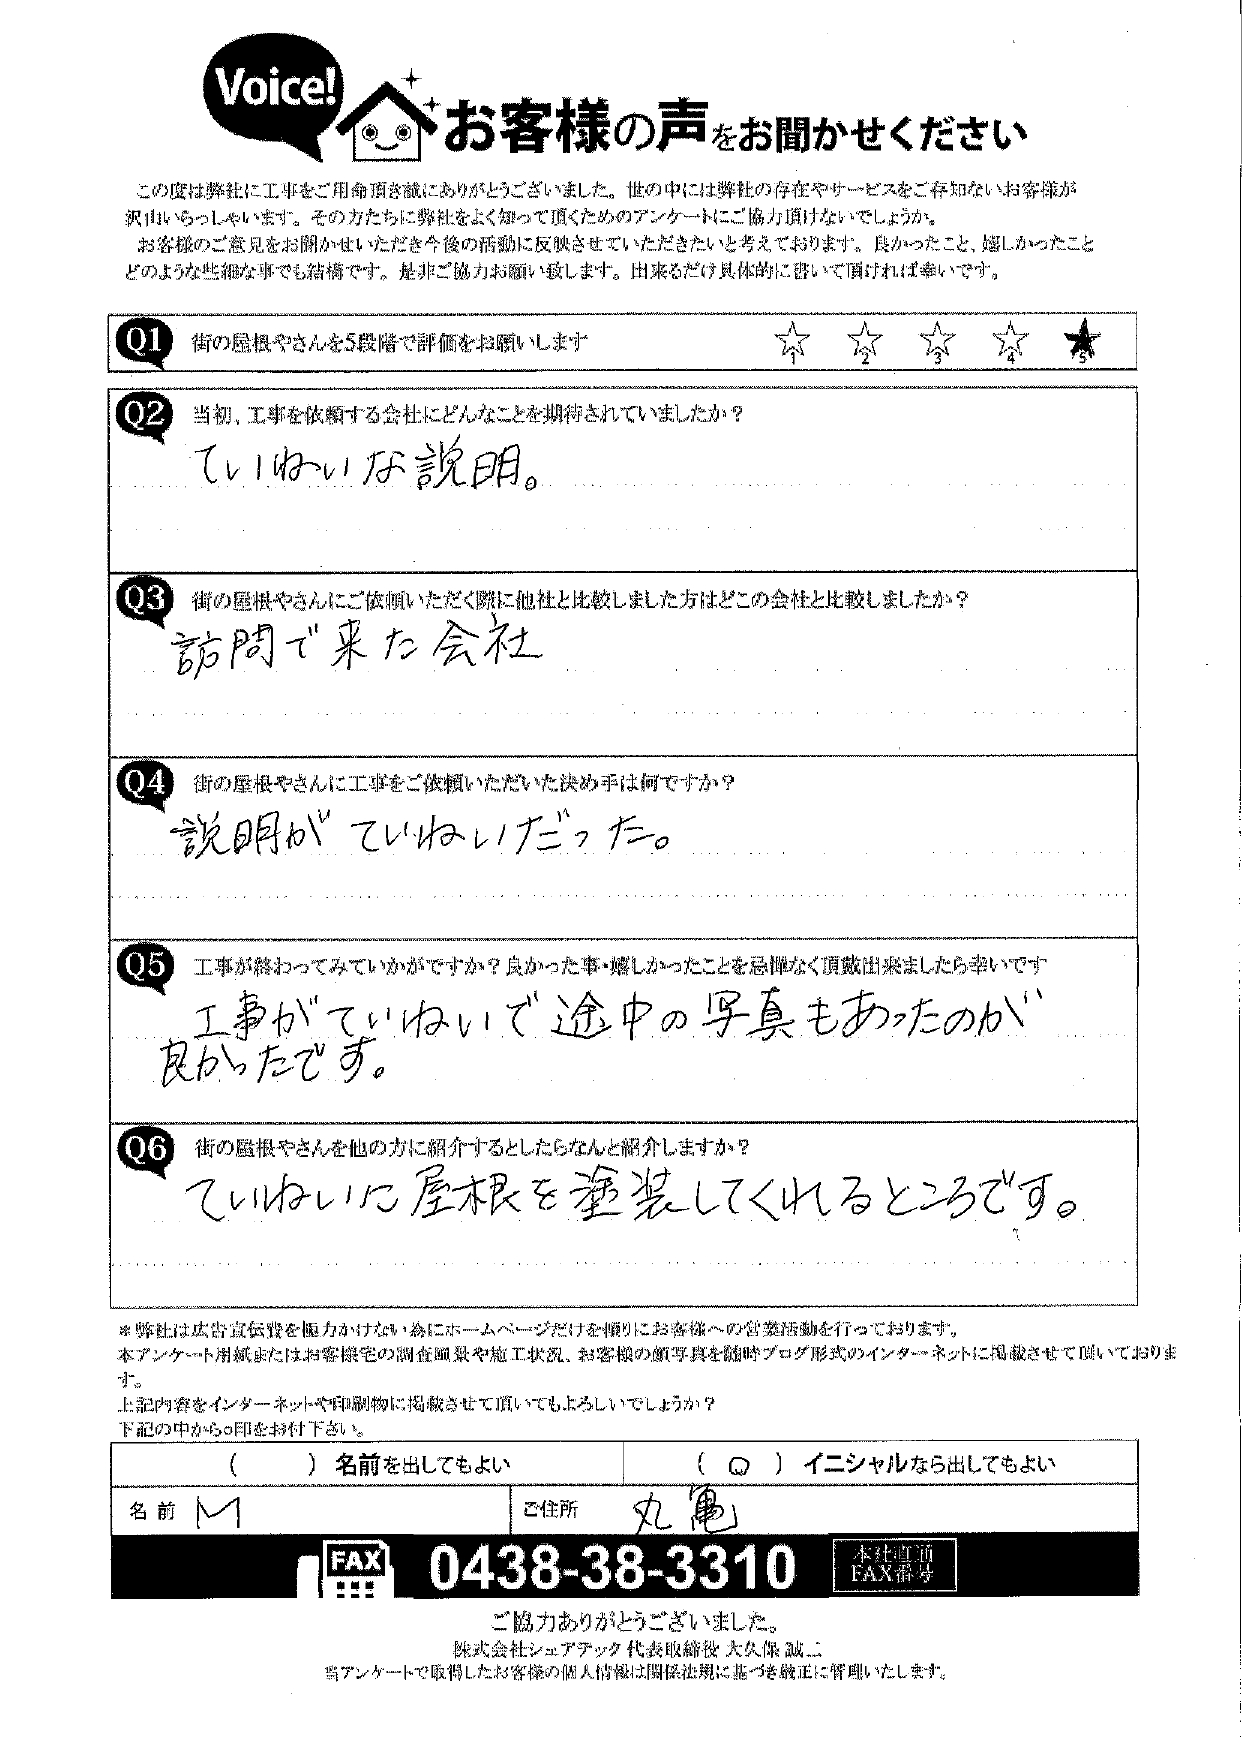 Voice!
お客様の声をお聞かせください
この度は弊社に工事をご用命頂き誠にありがとうございました。世の中には弊社の存在やサービスをご存知ないお客様が
沢山いらっしゃいます。その方たちに弊社をよく知って頂くためのアンケートにご協力頂けないでしょうか。
お客様のご意見をお聞かせいただき今後の活動に反映させていただきたいと考えております。良かったこと、嬉しかったこと
どのような些細な事でも結構です。是非ご協力お願い致します。出来るだけ具体的に書いて頂ければ幸いです。
Q1 街の屋根やさんを5段階で評価をお願いします ☆1 ☆2 ☆3 ☆4 ★5
Q2 当初、工事を依頼する会社にどんなことを期待されていましたか?
ていねいな説明。
Q3 街の屋根やさんにご依頼いただく際に他社と比較しました方はどこの会社と比較しましたか?
訪問で来た会社
Q4 街の屋根やさんに工事をご依頼いただいた決め手は何ですか?
説明がていねいだった。
Q5 工事が終わってみていかがですか?良かった事・嬉しかったことを忌憚なく頂戴出来ましたら幸いです
工事がていねいで途中の写真もあったのが
良かったです。
Q6 街の屋根やさんを他の方に紹介するとしたらなんと紹介しますか?
ていねいに屋根を塗装してくれるところです。
*弊社は広告宣伝費を極力かけない為にホームページだけを頼りにお客様への営業活動を行っております。
本アンケート用紙またはお客様宅の調査風景や施工状況、お客様の顔写真を随時ブログ形式のインターネットに掲載させて頂いておりま
す。
上記内容をインターネットや印刷物に掲載させて頂いてもよろしいでしょうか?
下記の中から○印をお付下さい。
( ) 名前を出してもよい ( ○ ) イニシャルなら出してもよい
名前 M ご住所 丸亀
FAX 0438-38-3310 本社直通
FAX番号
ご協力ありがとうございました。
株式会社シェアテック 代表取締役 大久保 誠二
当アンケートで取得したお客様の個人情報は関係法規に基づき厳正に管理いたします。